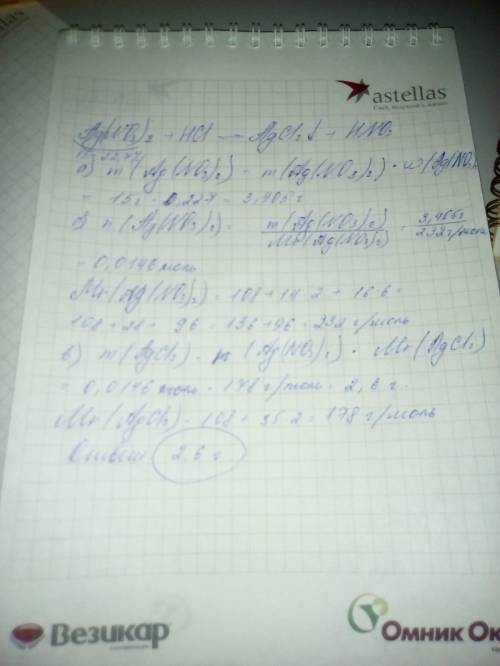 astellas
Свет, ведущий к жизни
Ag(NO₃)₂ + HCl — AgCl₂↓ + HNO₃
22,7%
а) m (Ag(NO₃)₂) = m(Ag(NO₃)₂) · ω(Ag(NO₃
= 15г · 0,227 = 3,405г
б) n (Ag(NO₃)₂) = m(Ag(NO₃)₂) / Mr(Ag(NO₃)₂) = 3,405г / 232г/моль
= 0,0146 моль
Mr(Ag(NO₃)₂) = 108 + 14·2 + 16·6 =
108 + 28 + 96 = 136 + 96 = 232 г/моль
в) m(AgCl₂) = n (Ag(NO₃)₂) · Mr (AgCl₂)
= 0,0146 моль · 178 г/моль = 2,6 г.
Mr(AgCl₂) = 108 + 35·2 = 178 г/моль
Ответ: 2,6 г.
Везикар
Омник Ок